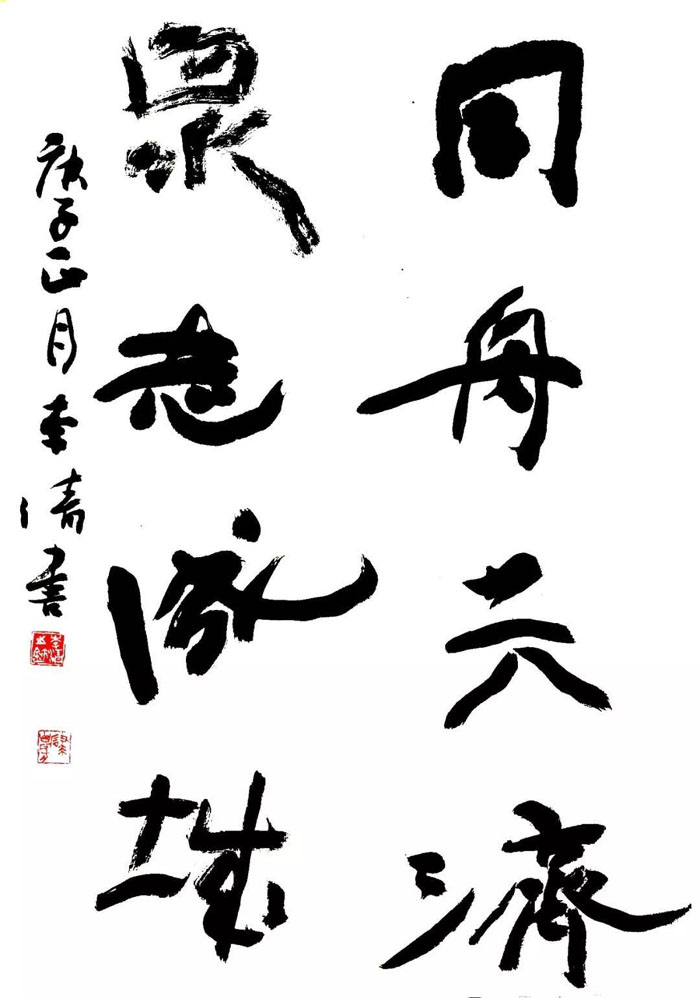 同舟共濟
眾志成城
庚子正月李清書